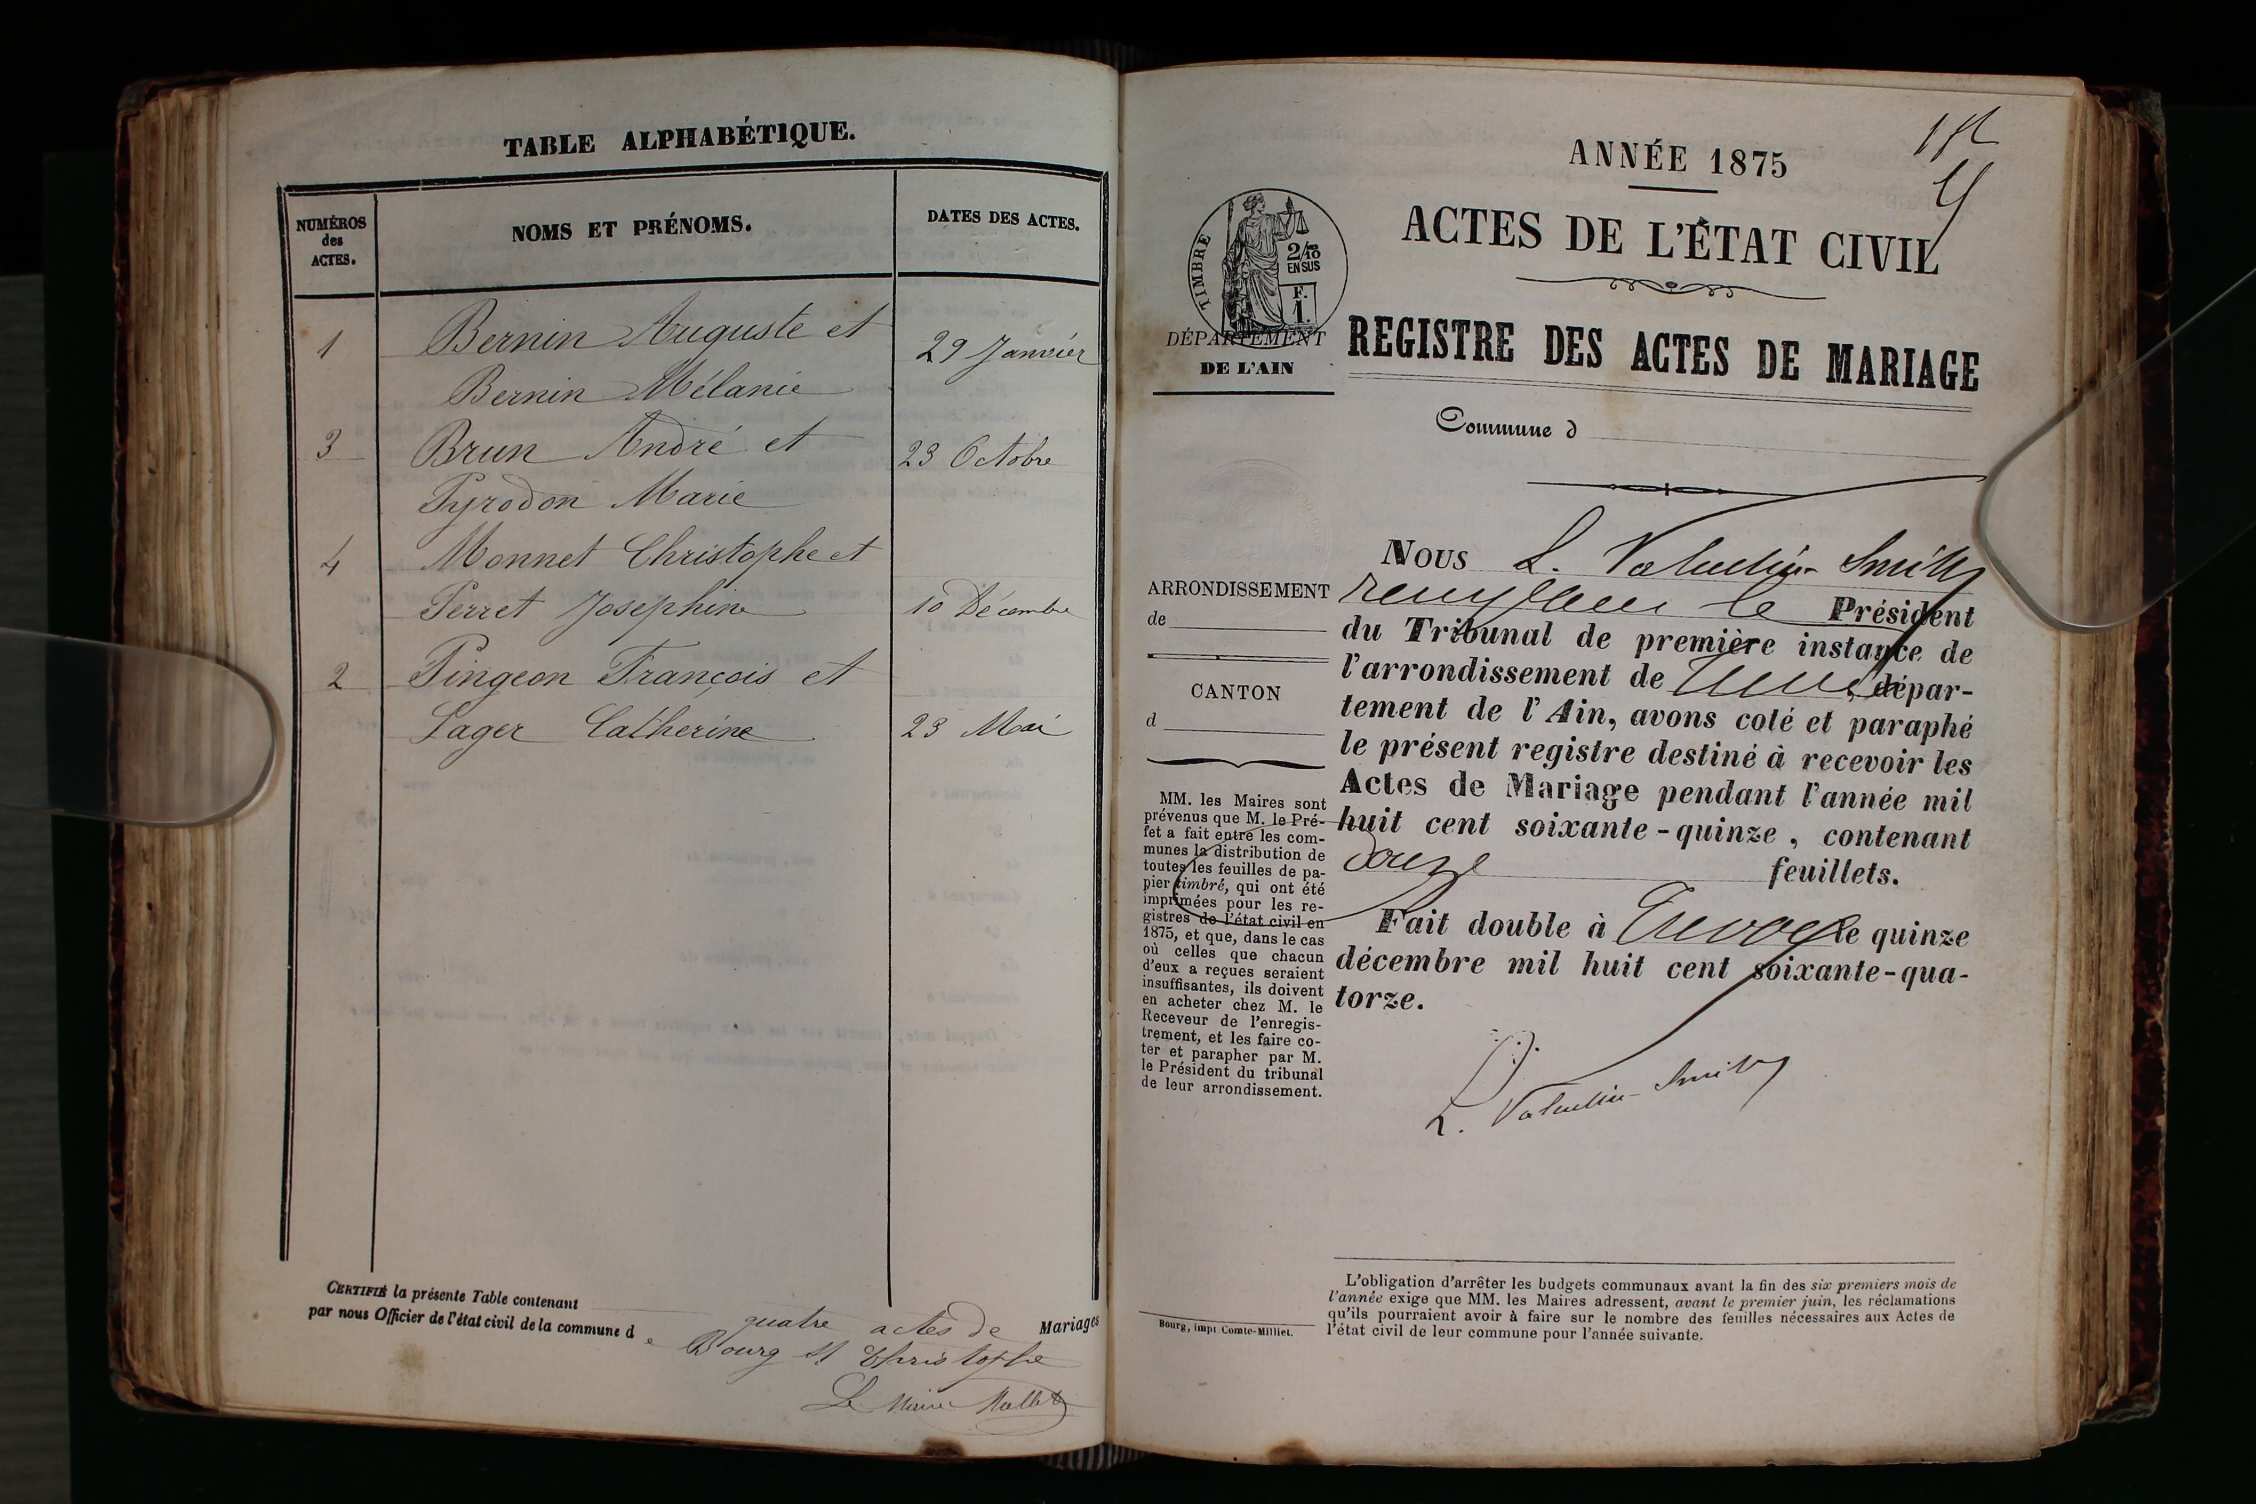 TABLE ALPHABÉTIQUE.
NUMÉROS
des
ACTES.
NOMS ET PRÉNOMS.
DATES DES ACTES.
1 Bernin Auguste et 29 Janvier
Bernin Mélanie
3 Brun André et 23 Octobre
Pyrodon Marie
4 Monnet Christophe et
Perret Joséphine 10 Décembre
2 Pingeon François et
Sager Catherine 23 Mai
CERTIFIÉ la présente Table contenant quatre actes de Mariages
par nous Officier de l'état civil de la commune de Bourg St Christophe
Le Maire
ANNÉE 1875
ACTES DE L'ÉTAT CIVIL
TIMBRE
2/10
EN SUS
F.
1.
DÉPARTEMENT
DE L'AIN
REGISTRE DES ACTES DE MARIAGE
Commune d
ARRONDISSEMENT
de
CANTON
d
MM. les Maires sont
prévenus que M. le Pré-
fet a fait entre les com-
munes la distribution de
toutes les feuilles de pa-
pier timbré, qui ont été
imprimées pour les re-
gistres de l'état civil en
1875, et que, dans le cas
où celles que chacun
d'eux a reçues seraient
insuffisantes, ils doivent
en acheter chez M. le
Receveur de l'enregis-
trement, et les faire co-
ter et parapher par M.
le Président du tribunal
de leur arrondissement.
NOUS L. Valentin-Smith
remplaçant le Président
du Tribunal de première instance de
l'arrondissement de dépar-
tement de l'Ain, avons coté et paraphé
le présent registre destiné à recevoir les
Actes de Mariage pendant l'année mil
huit cent soixante-quinze, contenant
douze feuillets.
Fait double à Trévoux le quinze
décembre mil huit cent soixante-qua-
torze.
L. Valentin-Smith
Bourg, impr Comte-Milliet.
L'obligation d'arrêter les budgets communaux avant la fin des six premiers mois de
l'année exige que MM. les Maires adressent, avant le premier juin, les réclamations
qu'ils pourraient avoir à faire sur le nombre des feuilles nécessaires aux Actes de
l'état civil de leur commune pour l'année suivante.